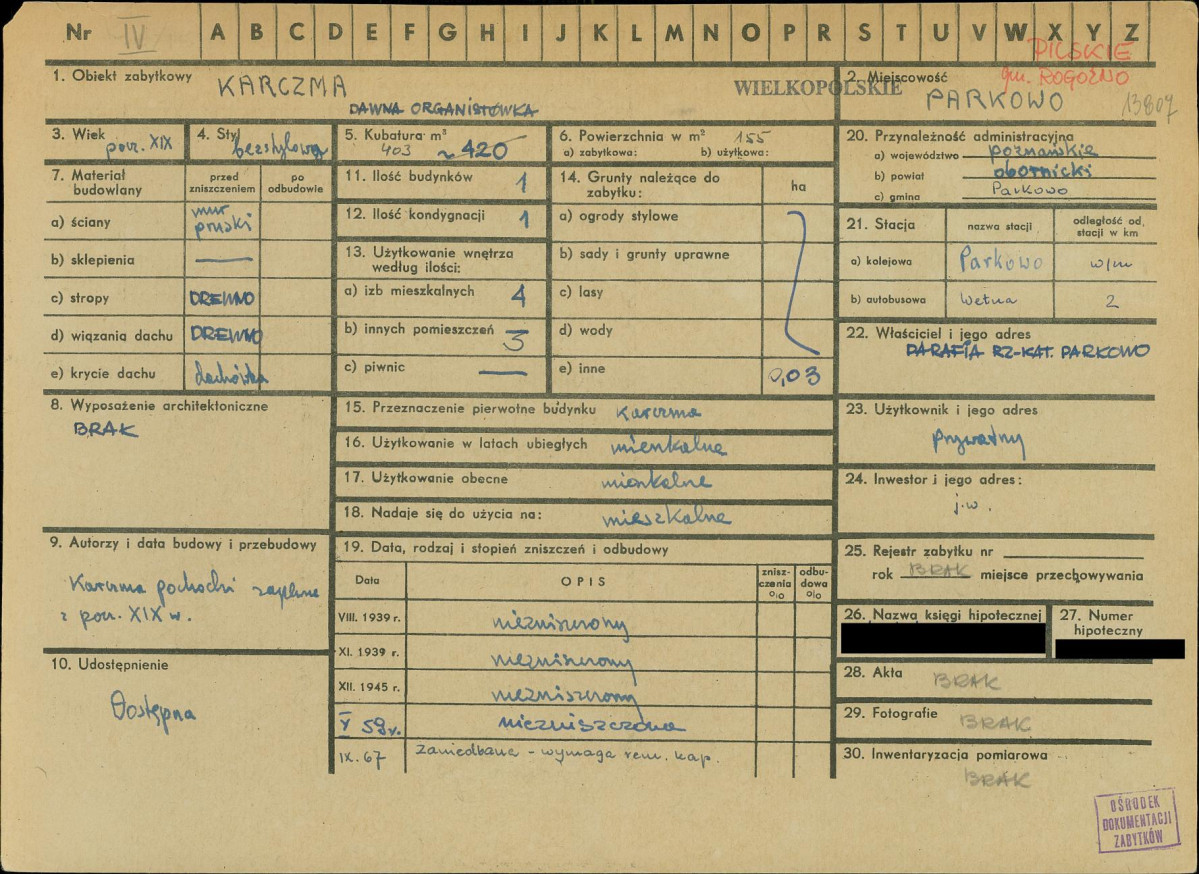 Nr IV A B C D E F G H I J K L M N O P R S T U V W X Y Z
PILSKIE
gm. ROGOŹNO
1. Obiekt zabytkowy KARCZMA
DAWNA ORGANISTÓWKA
WIELKOPOLSKIE
2. Miejscowość
PARKOWO 13807
3. Wiek
poł. XIX
4. Styl
bezstylowy
5. Kubatura m³
403 ~420
6. Powierzchnia w m² 155
a) zabytkowa: b) użytkowa:
7. Materiał budowlany
przed zniszczeniem
po odbudowie
a) ściany mur pruski
b) sklepienia —
c) stropy DREWNO
d) wiązania dachu DREWNO
e) krycie dachu dachówka
11. Ilość budynków 1
12. Ilość kondygnacji 1
13. Użytkowanie wnętrza
według ilości:
a) izb mieszkalnych 4
b) innych pomieszczeń 3
c) piwnic —
14. Grunty należące do
zabytku:
ha
a) ogrody stylowe
b) sady i grunty uprawne
c) lasy
d) wody
e) inne 0,03
20. Przynależność administracyjna
a) województwo poznańskie
b) powiat obornicki
c) gmina Parkowo
21. Stacja
nazwa stacji
odległość od, stacji w km
a) kolejowa Parkowo w/m
b) autobusowa Wełna 2
22. Właściciel i jego adres
PARAFIA RZ-KAT. PARKOWO
8. Wyposażenie architektoniczne
BRAK
15. Przeznaczenie pierwotne budynku karczma
16. Użytkowanie w latach ubiegłych mieszkalne
17. Użytkowanie obecne mieszkalne
18. Nadaje się do użycia na: mieszkalne
23. Użytkownik i jego adres
Prywatny
24. Inwestor i jego adres:
j.w.
9. Autorzy i data budowy i przebudowy
Karczma pochodzi zapewne
z poł. XIX w.
10. Udostępnienie
Dostępna
19. Data, rodzaj i stopień zniszczeń i odbudowy
Data
OPIS
znisz-czenia %
odbu-dowa %
VIII. 1939 r. niezniszczony
XI. 1939 r. niezniszczony
XII. 1945 r. niezniszczony
X 59 r. niezniszczona
IX. 67 zaniedbana - wymaga rem. kap.
25. Rejestr zabytku nr
rok BRAK miejsce przechowywania
26. Nazwa księgi hipotecznej
27. Numer
hipoteczny
28. Akta BRAK
29. Fotografie BRAK
30. Inwentaryzacja pomiarowa
BRAK
OŚRODEK
DOKUMENTACJI
ZABYTKÓW